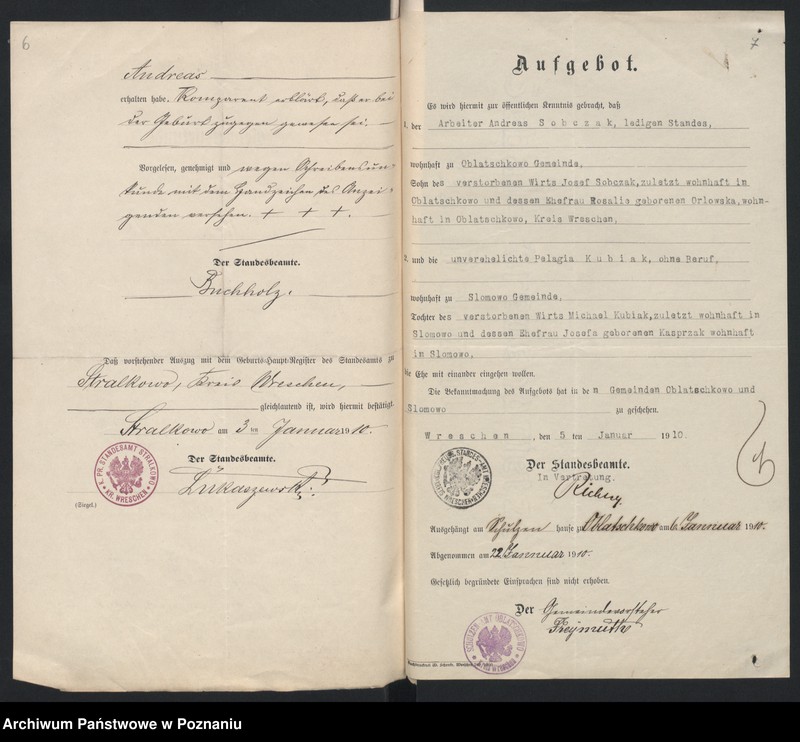 6
Andreas
erhalten habe. Komparent erklärt, daß er bei
der Geburt zugegen gewesen sei.
Vorgelesen, genehmigt und wegen Schreibensun-
kunde mit dem Handzeichen des Anzei-
genden versehen. + + +.
Der Standesbeamte.
Buchholz.
Daß vorstehender Auszug mit dem Geburts-Haupt-Register des Standesamts zu
Stralkowo, Kreis Wreschen,
gleichlautend ist, wird hiermit bestätigt.
Stralkowo am 3 ten Januar 1910.
Der Standesbeamte.
K. PR. STANDESAMT STRALKOWO
KR. WRESCHEN
Lukaszewski
(Siegel.)
7
Aufgebot.
Es wird hiermit zur öffentlichen Kenntnis gebracht, daß
1. der Arbeiter Andreas Sobczak, ledigen Standes,
wohnhaft zu Oblatschkowo Gemeinde,
Sohn des verstorbenen Wirts Josef Sobczak, zuletzt wohnhaft in
Oblatschkowo und dessen Ehefrau Rosalie geborenen Orlowska, wohn-
haft in Oblatschkowo, Kreis Wreschen,
2. und die unverehelichte Pelagia Kubiak, ohne Beruf,
wohnhaft zu Slomowo Gemeinde,
Tochter des verstorbenen Wirts Michael Kubiak, zuletzt wohnhaft in
Slomowo und dessen Ehefrau Josefa geborenen Kasprzak wohnhaft
in Slomowo,
die Ehe mit einander eingehen wollen.
Die Bekanntmachung des Aufgebots hat in den Gemeinden Oblatschkowo und
Slomowo zu geschehen.
Wreschen, den 5 ten Januar 1910.
Der Standesbeamte.
In Vertretung.
Ausgehängt am Schulzen hause zu Oblatschkowo am 6. Januar 1910.
Abgenommen am 22 Januar 1910.
Gesetzlich begründete Einsprachen sind nicht erhoben.
Der Gemeindevorsteher
Freymuth
Archiwum Państwowe w Poznaniu